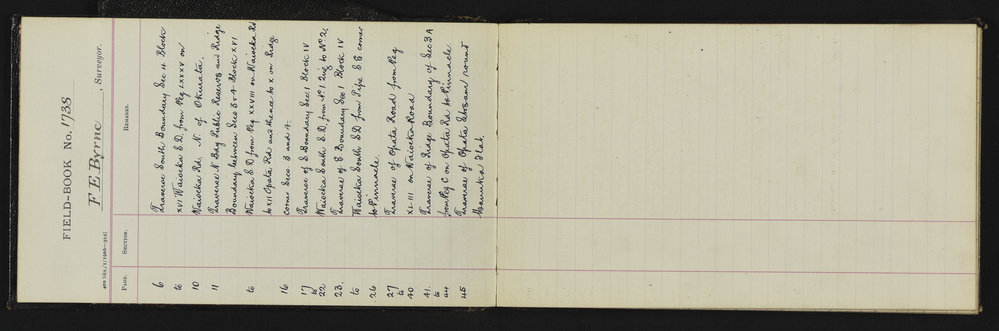 FIELD-BOOK No. 1738
F E Byrne, Surveyor.
400 bks./2/1906—921]
PAGE. SECTION. REMARKS.
6 Traverse South Boundary Sec 4 Block
to XVI Waioeka S.D. from Peg LXXXV on
10 Waioeka Rd. N. of Okurata.
11 Traverse N Bdy Public Reserve and Ridge
Boundary between Secs 3 & 4 Block XVI
to Waioeka S.D from Peg XXVIII on Waioeka Rd
to XII Opata Rd and thence to X on Ridge
16 corner Secs 3 and 4.
17 Traverse of S Boundary Sec 1 Block IV
to
22 Waioeka South S.D. from No. 1. Trig to No. 2.
23. Traverse of E Boundary Sec 1 Block IV
to Waioeka South S.D from Pipe S.E corner
26 to Pinnacle.
27 Traverse of Opata Road from Peg
to
40 XLIII on Waioeka Road
41. Traverse of Ridge Boundary of Sec 3A
to
44 from Peg C on Opata Rd to Pinnacle
45 Traverse of Opata Stream round
Manuka Flat